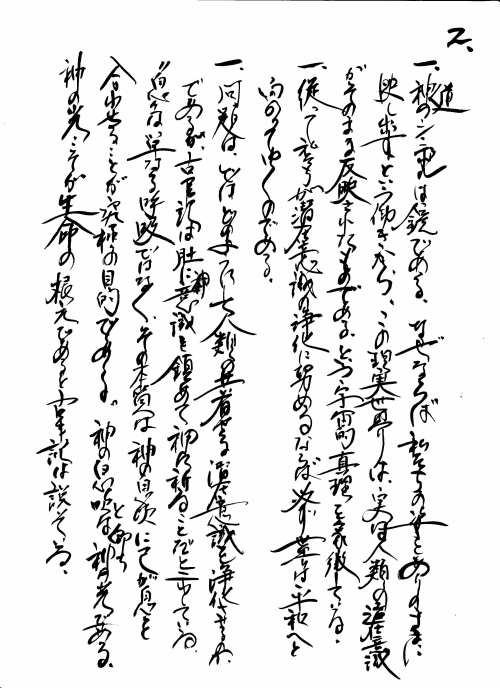 2.
一、神道の心霊は鏡である。なぜならば私達の姿をありのままに
映し出すという働きから、この現実世界は、実は人類の潜在意識
がそのまま反映されたものである、という宇宙の真理を象徴している。
一、従って私達が潜在意識の浄化に努めるならば必ず世は平和へと
向かってゆくのである。
一、問題は、いかにして人類の共有する潜在意識を浄化させるか、
であるが、古事記は肚に神意識を鎮めて神に祈ることだと云っている。
息は単なる呼吸ではなく、その本質は神の息吹にて我が息を
合わせることが究極の目的である。神の息吹とは即ち神の光である。
神の光こそが生命の根元であると古事記は説いている、